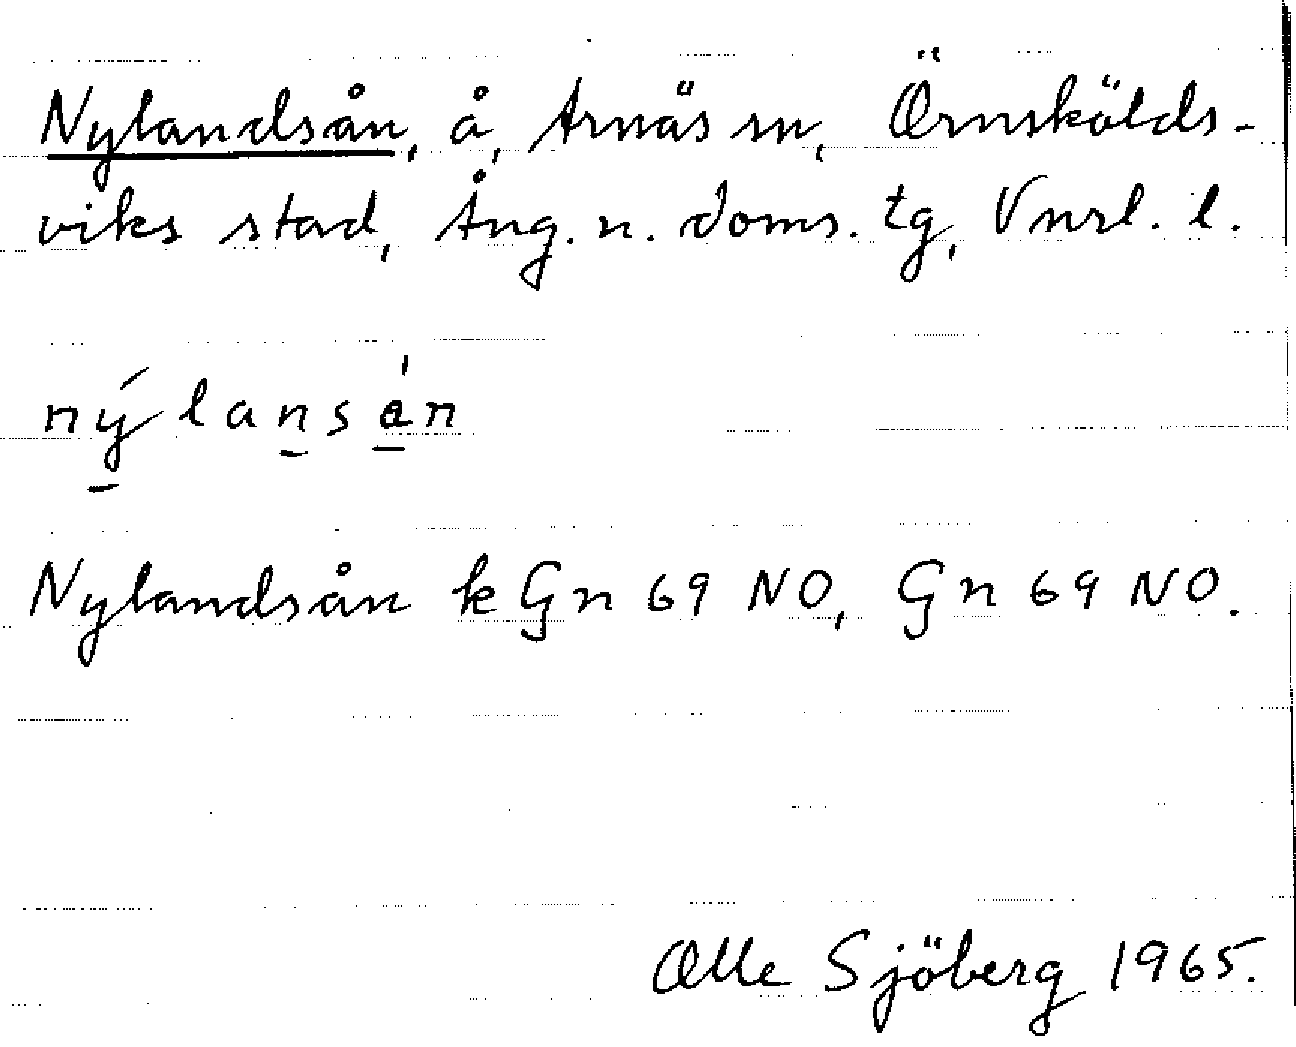 Nylandsån, å, Arnäs sn, Örnskölds-
viks stad, Ång. n. doms. tg, Vnrl. l.
nýlansån
Nylandsån k Gn 69 NO, Gn 69 NO.
Olle Sjöberg 1965.